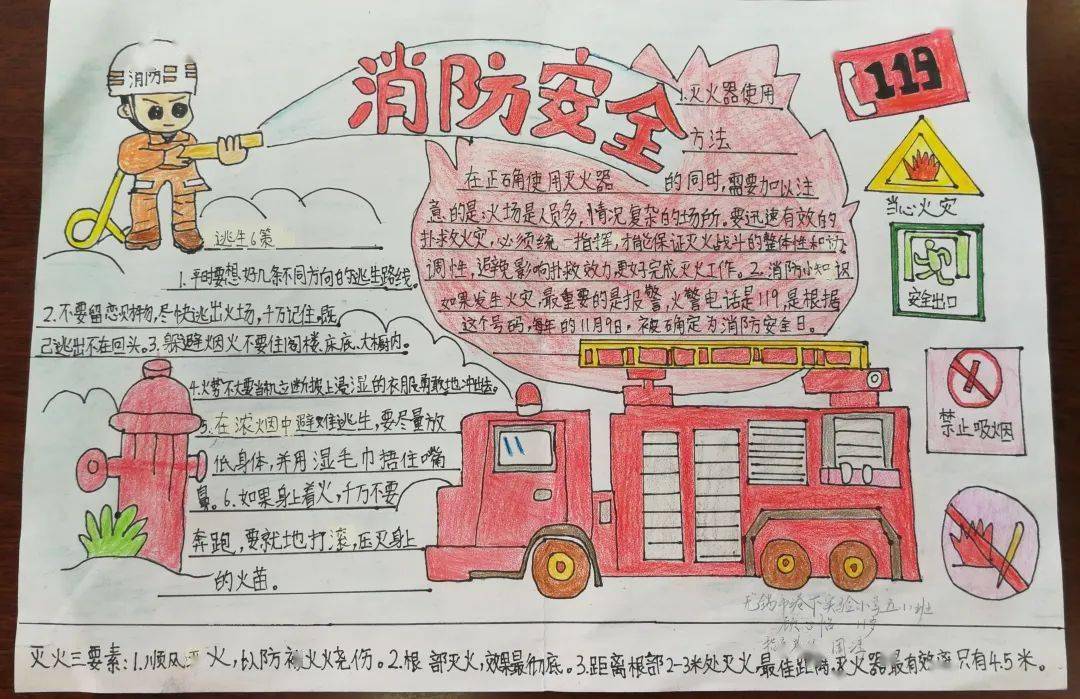 消防
消防安全
119
1.灭火器使用
方法
在正确使用灭火器 的同时,需要加以注
意的是:火场是人员多,情况复杂的场所。要迅速有效的
扑救火灾,必须统一指挥,才能保证灭火战斗的整体性和协
调性,避免影响扑救效力,更好完成灭火工作。2.消防小知识
如果发生火灾,最重要的是报警,火警电话是119,是根据
这个号码,每年的11月9日,被确定为消防安全日。
当心火灾
安全出口
禁止吸烟
逃生6策
1.平时要想好几条不同方向的逃生路线。
2.不要留恋财物,尽快逃出火场,千万记住,既
己逃出不在回头。3.躲避烟火不要往阁楼、床底、大橱内。
4.火势不大要当机立断披上浸湿的衣服勇敢地冲出去。
5.在浓烟中避难逃生,要尽量放
低身体,并用湿毛巾捂住嘴
鼻。6.如果身上着火,千万不要
奔跑,要就地打滚,压灭身上
的火苗。
无锡市港下实验小学五11班
11岁
灭火三要素:1.顺风 火,以防被火烧伤。2.根部灭火,效果最彻底。3.距离根部2-3米处灭火最佳距离,灭火器最有效率只有4.5米。